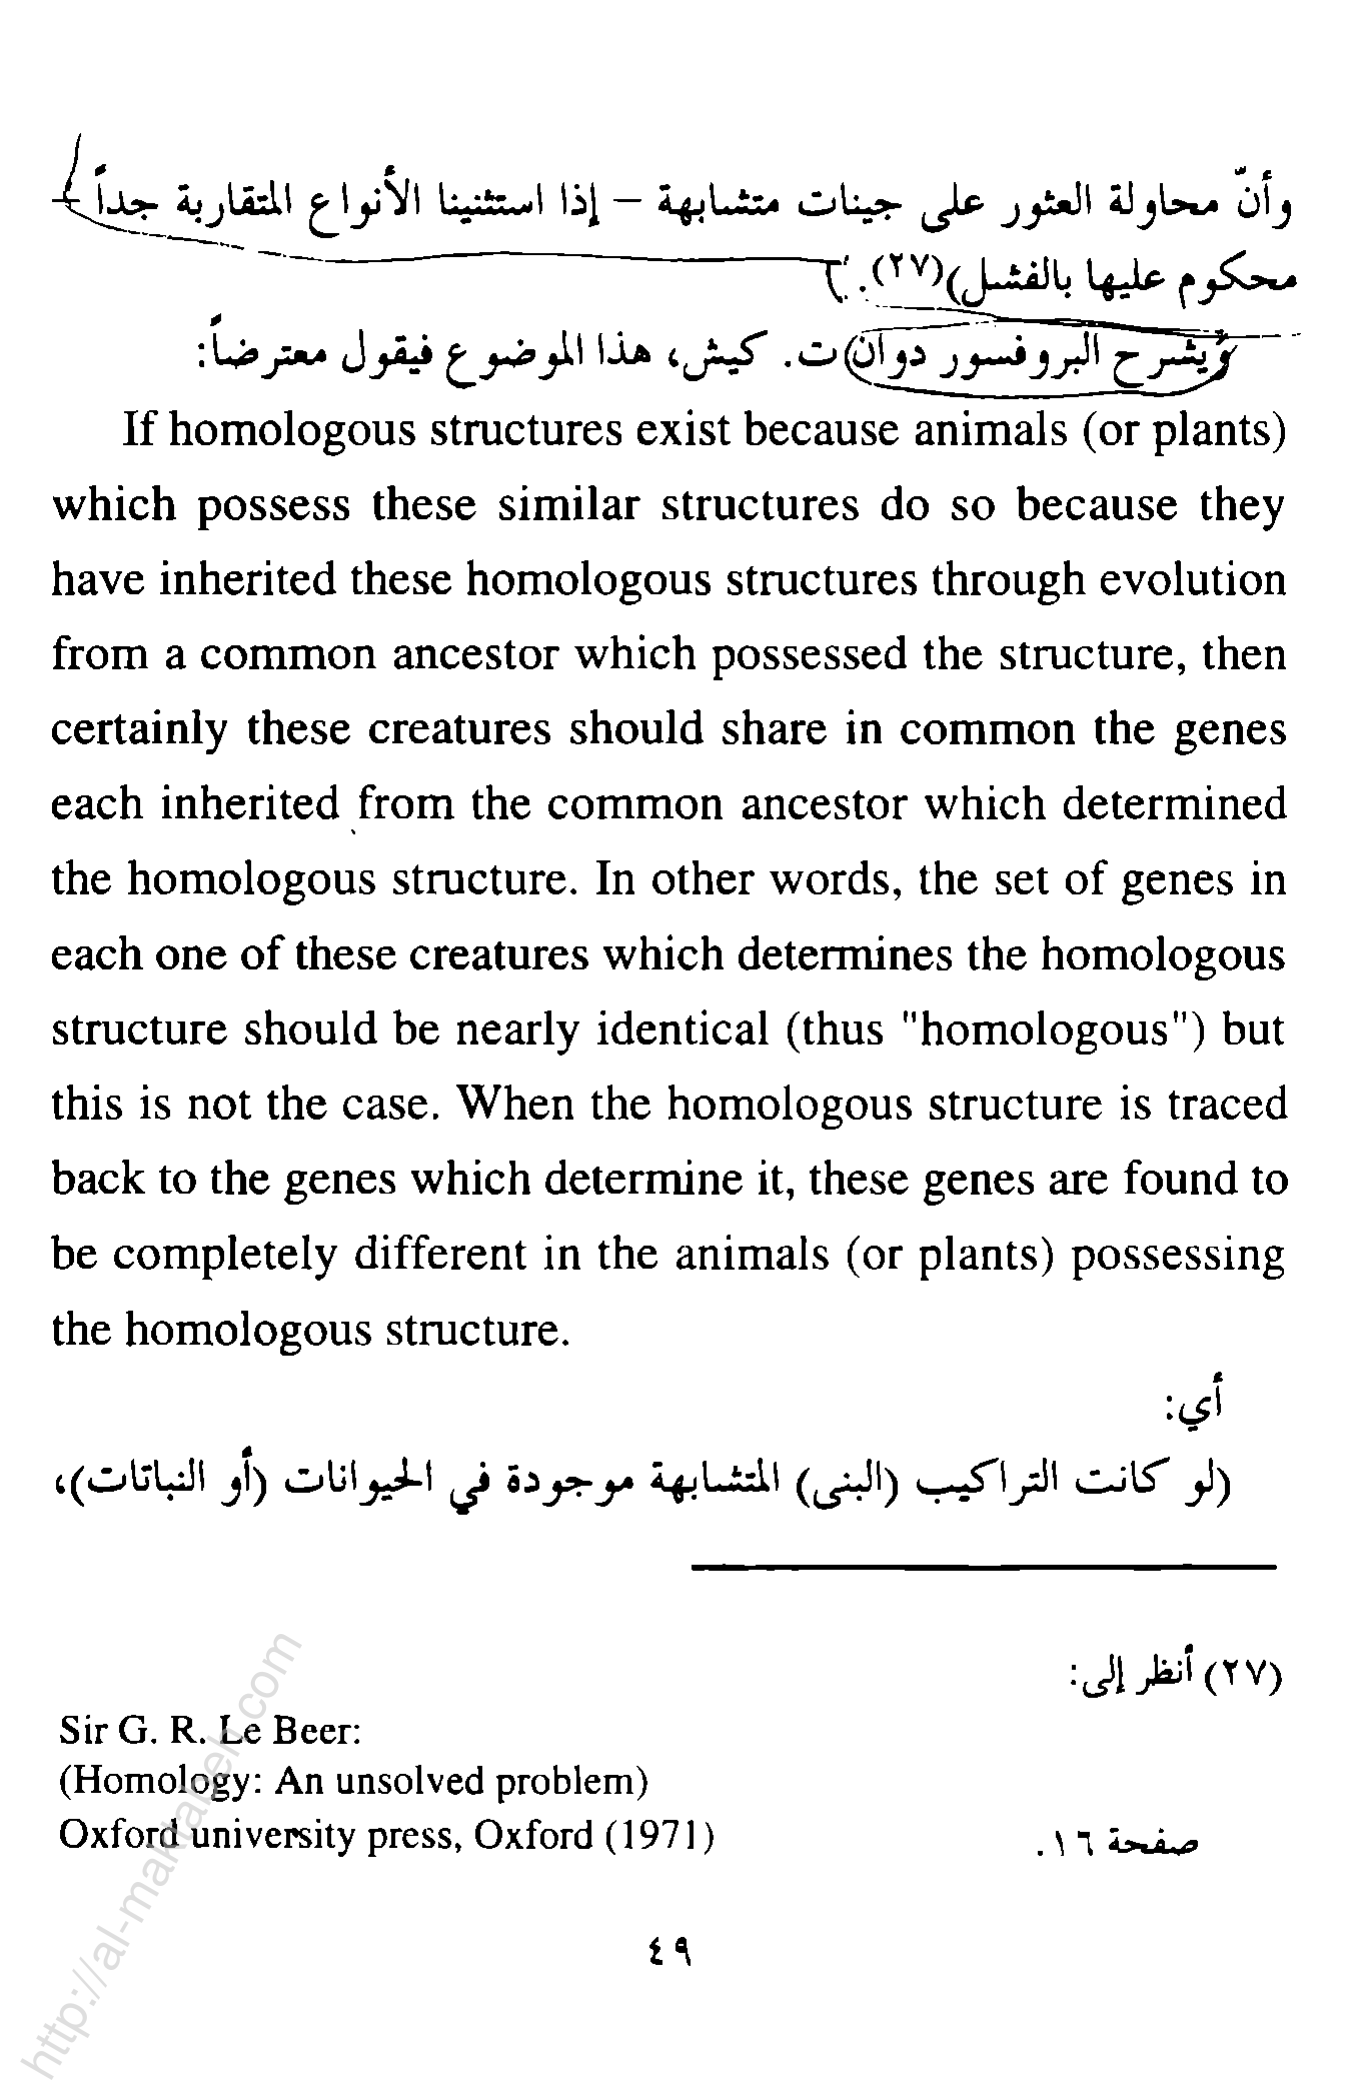 وأنّ محاولة العثور على جينات متشابهة – إذا استثنينا الأنواع المتقاربة جداً –
محكوم عليها بالفشل)(٢٧).
ويشرح البروفسور دوان ت. كيش، هذا الموضوع فيقول معترضاً:
If homologous structures exist because animals (or plants)
which possess these similar structures do so because they
have inherited these homologous structures through evolution
from a common ancestor which possessed the structure, then
certainly these creatures should share in common the genes
each inherited from the common ancestor which determined
the homologous structure. In other words, the set of genes in
each one of these creatures which determines the homologous
structure should be nearly identical (thus "homologous") but
this is not the case. When the homologous structure is traced
back to the genes which determine it, these genes are found to
be completely different in the animals (or plants) possessing
the homologous structure.
أي:
(لو كانت التراكيب (البنى) المتشابهة موجودة في الحيوانات (أو النباتات)،
(٢٧) أنظر إلى:
Sir G. R. Le Beer:
(Homology: An unsolved problem)
Oxford university press, Oxford (1971)
صفحة ١٦.
٤٩
http://al-maktabeh.com